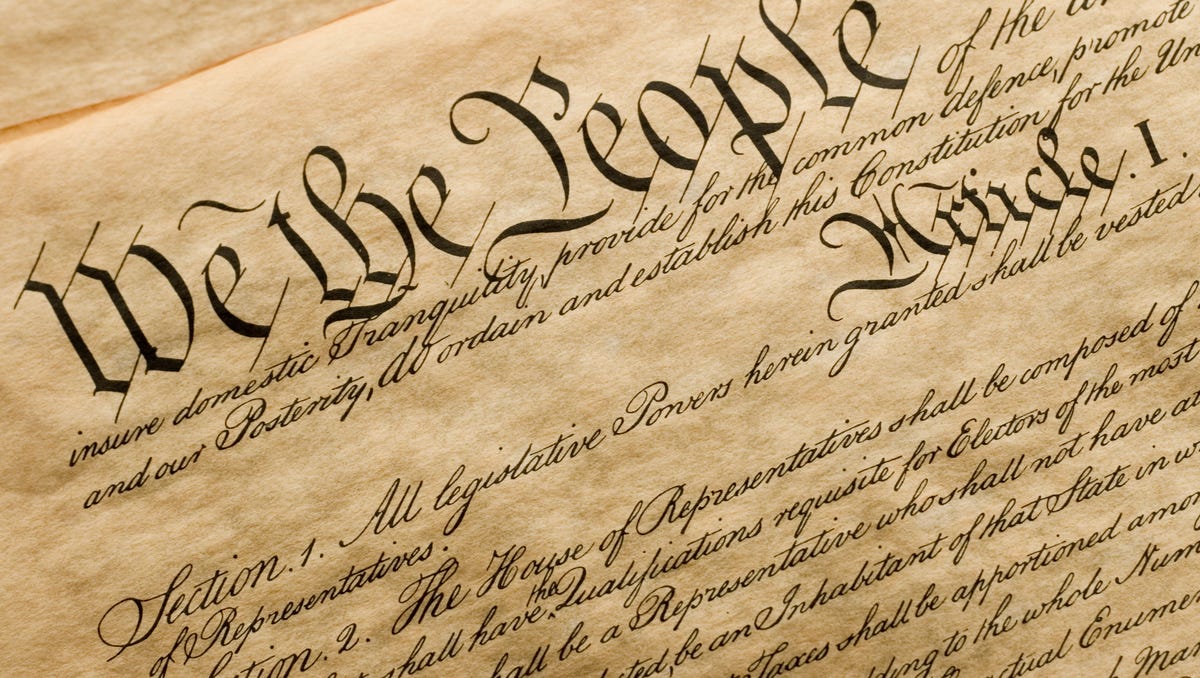 We the People of the
insure domestic Tranquility, provide for the common defence, promote
and our Posterity, do ordain and establish this Constitution for the
Article. I.
Section. 1. All legislative Powers herein granted shall be vested
of Representatives.
2. The House of Representatives shall be composed of
shall have the Qualifications requisite for Electors of the most
be a Representative who shall not have
be an Inhabitant of that State in
Taxes shall be apportioned
to the whole
Enumer